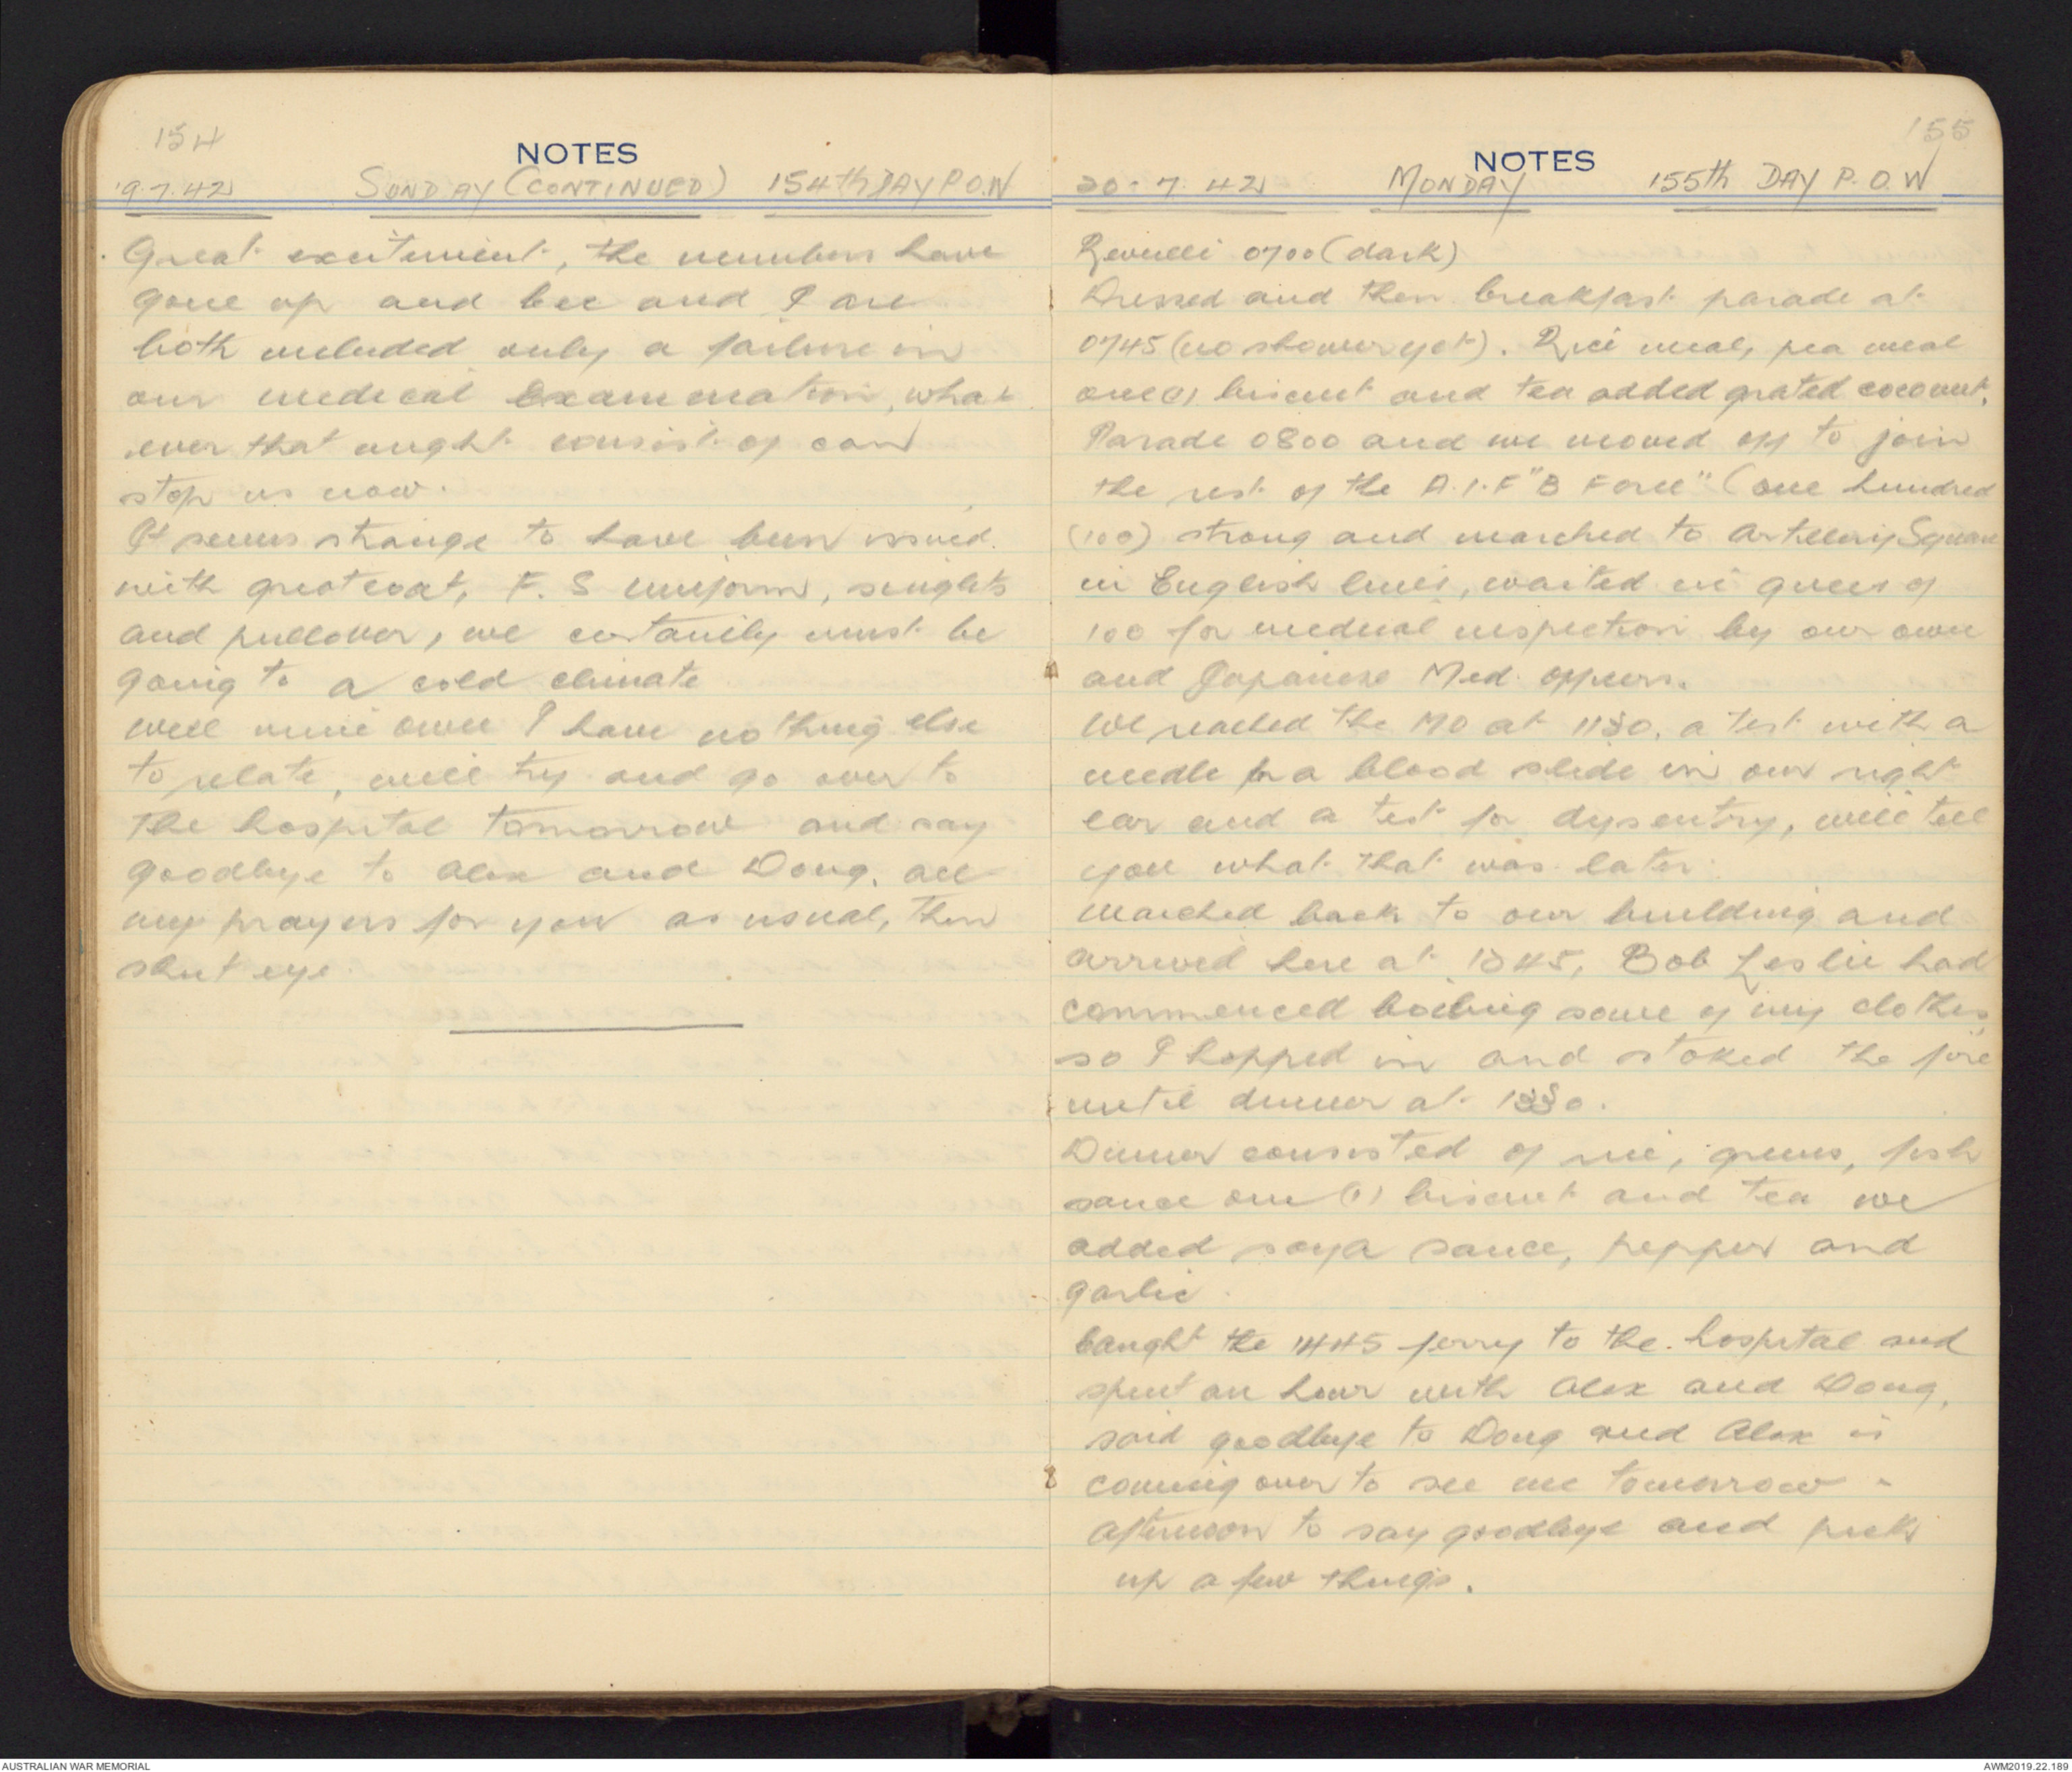 154
NOTES
19.7.42 SUNDAY (CONTINUED) 154th DAY P.O.W
Great excitement, the numbers have
gone up and Lee and I are
both included only a failure in
our medical examination, what
ever that might consist of can
stop us now.
It seems strange to have been issued
with greatcoat, F.S uniform, singlets
and pullover, we certainly must be
going to a cold climate
well mine own I have nothing else
to relate, will try and go over to
the hospital tomorrow and say
goodbye to Alex and Doug. all
my prayers for you as usual, then
shut eye.
155
NOTES
20.7.42 MONDAY 155th DAY P.O.W
Reveille 0700 (dark)
Dressed and then breakfast parade at
0745 (no shower yet). Rice meal, pea meal
one (1) biscuit and tea added grated coconut.
Parade 0800 and we moved off to join
the rest of the A.I.F "B Force" (one hundred
(100) strong and marched to Artillery Square
in English lines, waited in queues of
100 for medical inspection by our own
and Japanese Med. officers.
We reached the MO at 1130, a test with a
needle for a blood slide in our right
ear and a test for dysentry, will tell
you what that was later.
Marched back to our building and
arrived here at 1245, Bob Leslie had
commenced boiling some of my clothes
so I hopped in and stoked the fire
until dinner at 1330.
Dinner consisted of rice, greens, fish
sauce one (1) biscuit and tea we
added soya sauce, pepper and
garlic.
Caught the 1445 ferry to the hospital and
spent an hour with Alex and Doug,
said goodbye to Doug and Alex is
coming over to see me tomorrow
afternoon to say goodbye and pick
up a few things.
AUSTRALIAN WAR MEMORIAL
AWM2019.22.189